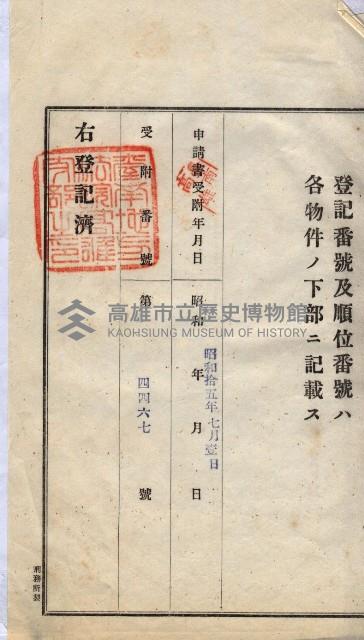 登記番號及順位番號ハ
各物件ノ下部ニ記載ス
申請書受附年月日
昭和 年 月 日
昭和拾五年七月壹日
受附番號
第 四四六七 號
右登記濟
刑務所製
高雄市立歷史博物館
KAOHSIUNG MUSEUM OF HISTORY